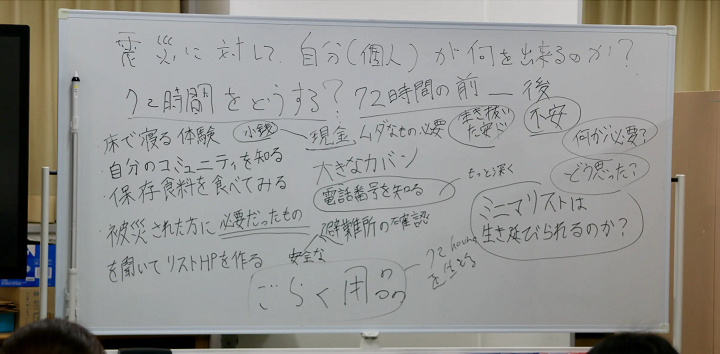 震災に対して、自分(個人)が何を出来るのか?
72時間をどうする? 72時間の前 ― 後
・床で寝る体験
小銭 現金 ムダなもの必要
生き抜いた
不安
何が必要?
・自分のコミュニティを知る
大きなカバン
どう思った?
・保存食料を食べてみる
電話番号を知る
もっと深く
・被災された方に必要だったもの
を聞いてリストHPを作る
避難所の確認
安全な
ミニマリストは
生き延びられるのか?
ごらく用品
72 hours
を生きる